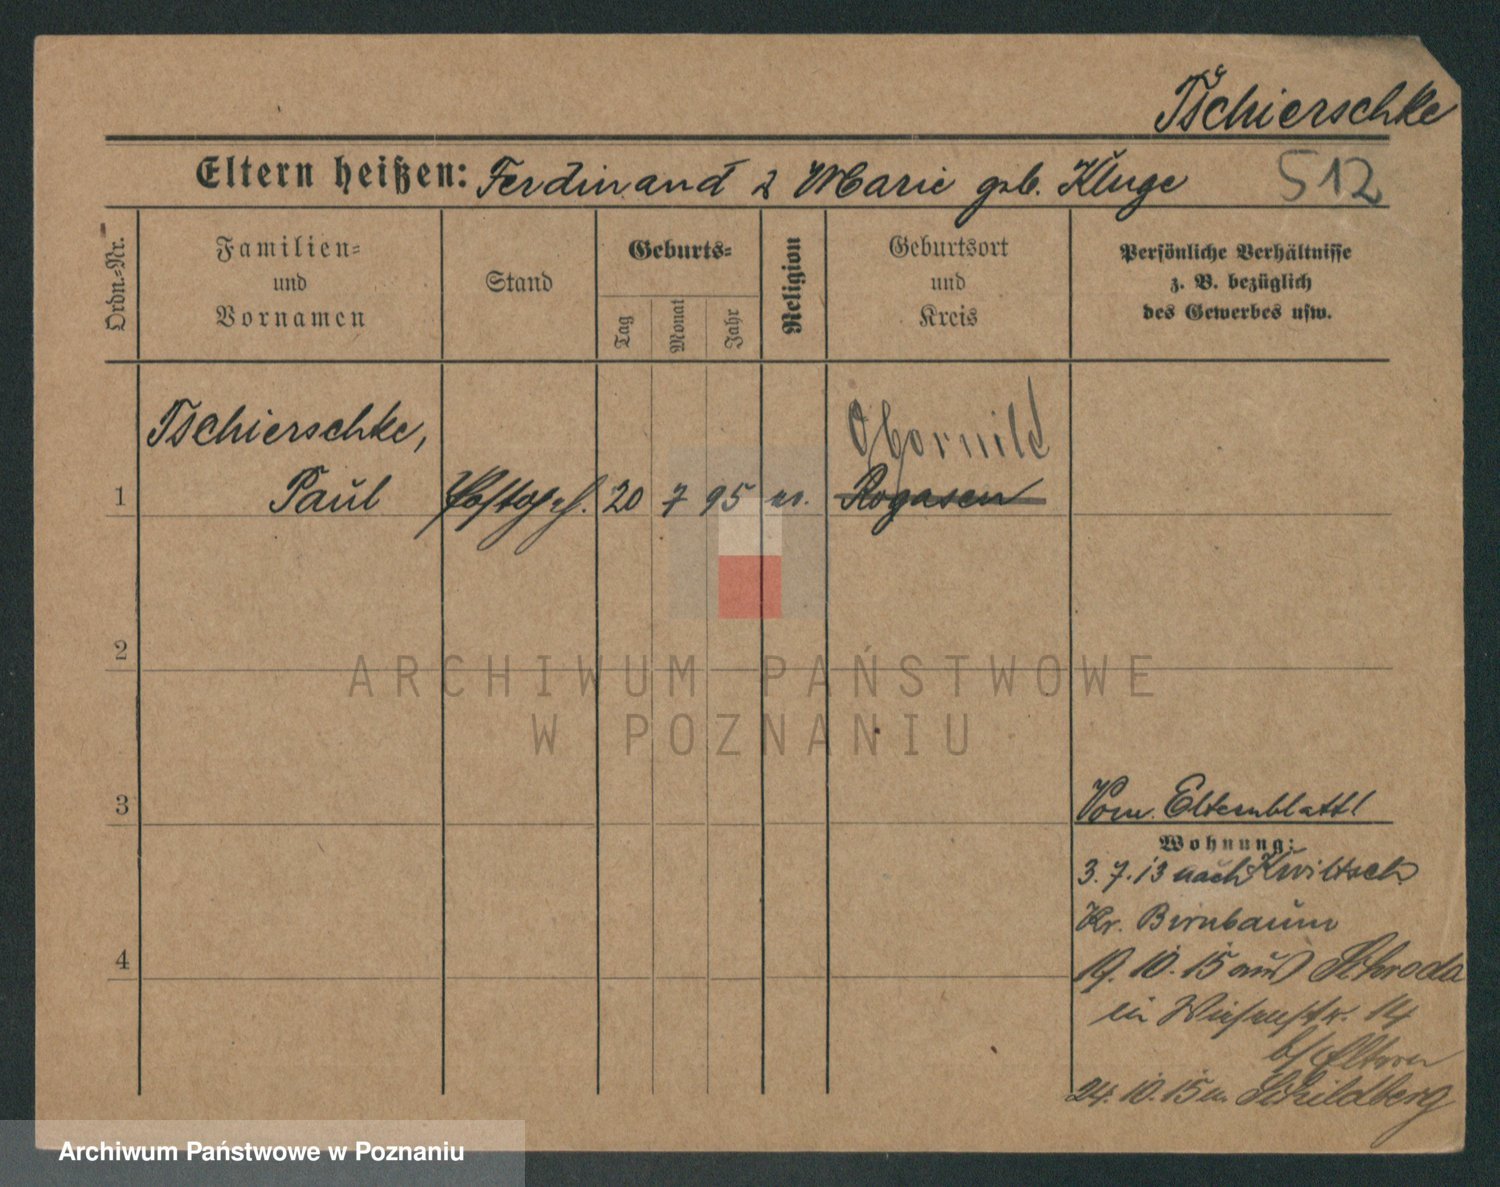 Tschierschke
Eltern heißen: Ferdinand & Marie geb. Kluge
512
Ordn.=Nr.
Familien=
und
Vornamen
Stand
Geburts=
Tag
Monat
Jahr
Religion
Geburtsort
und
Kreis
Persönliche Verhältnisse
z. B. bezüglich
des Gewerbes usw.
Tschierschke,
Obornik
1 Paul Postgeh. 20 7 95 ev. Rogasen
2
ARCHIWUM PAŃSTWOWE
W POZNANIU
3
Vom Elternblatt!
Wohnung:
3. 7. 13 nach Kwiltsch
Kr. Birnbaum
4
19. 10. 15 aus Schroda
in Wiesenstr. 14
b/ Eltern
24. 10. 15 n. Schildberg
Archiwum Państwowe w Poznaniu